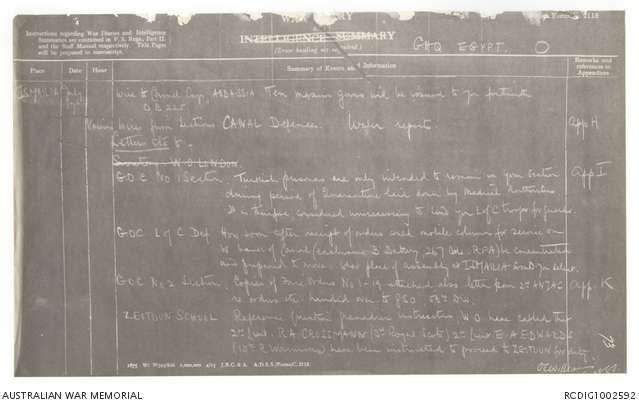 Army Form C. 2118
Instructions regarding War Diaries and Intelligence
Summaries are contained in F. S. Regs., Part II.
and the Staff Manual respectively. Title Pages
will be prepared in manuscript.
INTELLIGENCE SUMMARY
(Erase heading not required.)
GHQ EGYPT
Place
Date
Hour
Summary of Events and Information
Remarks and
references to
Appendices
ISMAILIA
July
Wire to Camel Corp, ABBASSIA. Ten maxim guns will be issued to you forthwith
Q.B. 225.
Wires from Sections CANAL Defences. Water report.
App H
Letters etc to
W.O. LONDON
G.O.C. No 1 Sector. Turkish prisoners are only intended to remain in your Section
App I
during period of Quarantine laid down by Medical Authorities
is therefore considered unnecessary to lend you L of C troops for guards.
GOC L of C Def. How soon after receipt of orders could mobile column for service on
W bank of Canal (less B Battery 267 Bde. R.F.A) be concentrated
and prepared to move. Is place of assembly at ISMAILIA
G.O.C. No 2 Section. Copies of Fire Orders No 1-19 attached also letter from 2nd ANZAC
App. K
re orders etc. handed over to GSO Div.
ZEITOUN SCHOOL Reference further grenadier instructors W.O. have cabled that
2nd Lieut. R.A. CROSSMANN (3rd Royal Scots) 2nd Lieut E.A EDWARDS
(10th R. Warwicks) have been instructed to proceed to ZEITOUN for duty.
73
1875 Wt. W593/826 1,000,000 4/15 J.B.C. & A. A.D.S.S./Forms/C. 2118.
AUSTRALIAN WAR MEMORIAL
RCDIG1002592